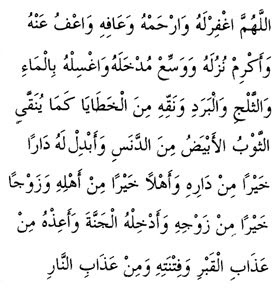 اللَّهُمَّ اغْفِرْلَهُ وَارْحَمْهُ وَعَافِهِ وَاعْفُ عَنْهُ
وَأَكْرِمْ نُزُلَهُ وَوَسِّعْ مُدْخَلَهُ وَاغْسِلْهُ بِالْمَاءِ
وَالثَّلْجِ وَالْبَرَدِ وَنَقِّهِ مِنَ الْخَطَايَا كَمَا يُنَقَّي
الثَّوْبُ الأَبْيَضُ مِنَ الدَّنَسِ وَأَبْدِلْ لَهُ دَارًا
خَيْرًا مِنْ دَارِهِ وَأَهْلاً خَيْرًا مِنْ أَهْلِهِ وَزَوْجًا
خَيْرًا مِنْ زَوْجِهِ وَأَدْخِلْهُ الْجَنَّةَ وَأَعِذْهُ مِنْ
عَذَابِ الْقَبْرِ وَفِتْنَتِهِ وَمِنْ عَذَابِ النَّارِ